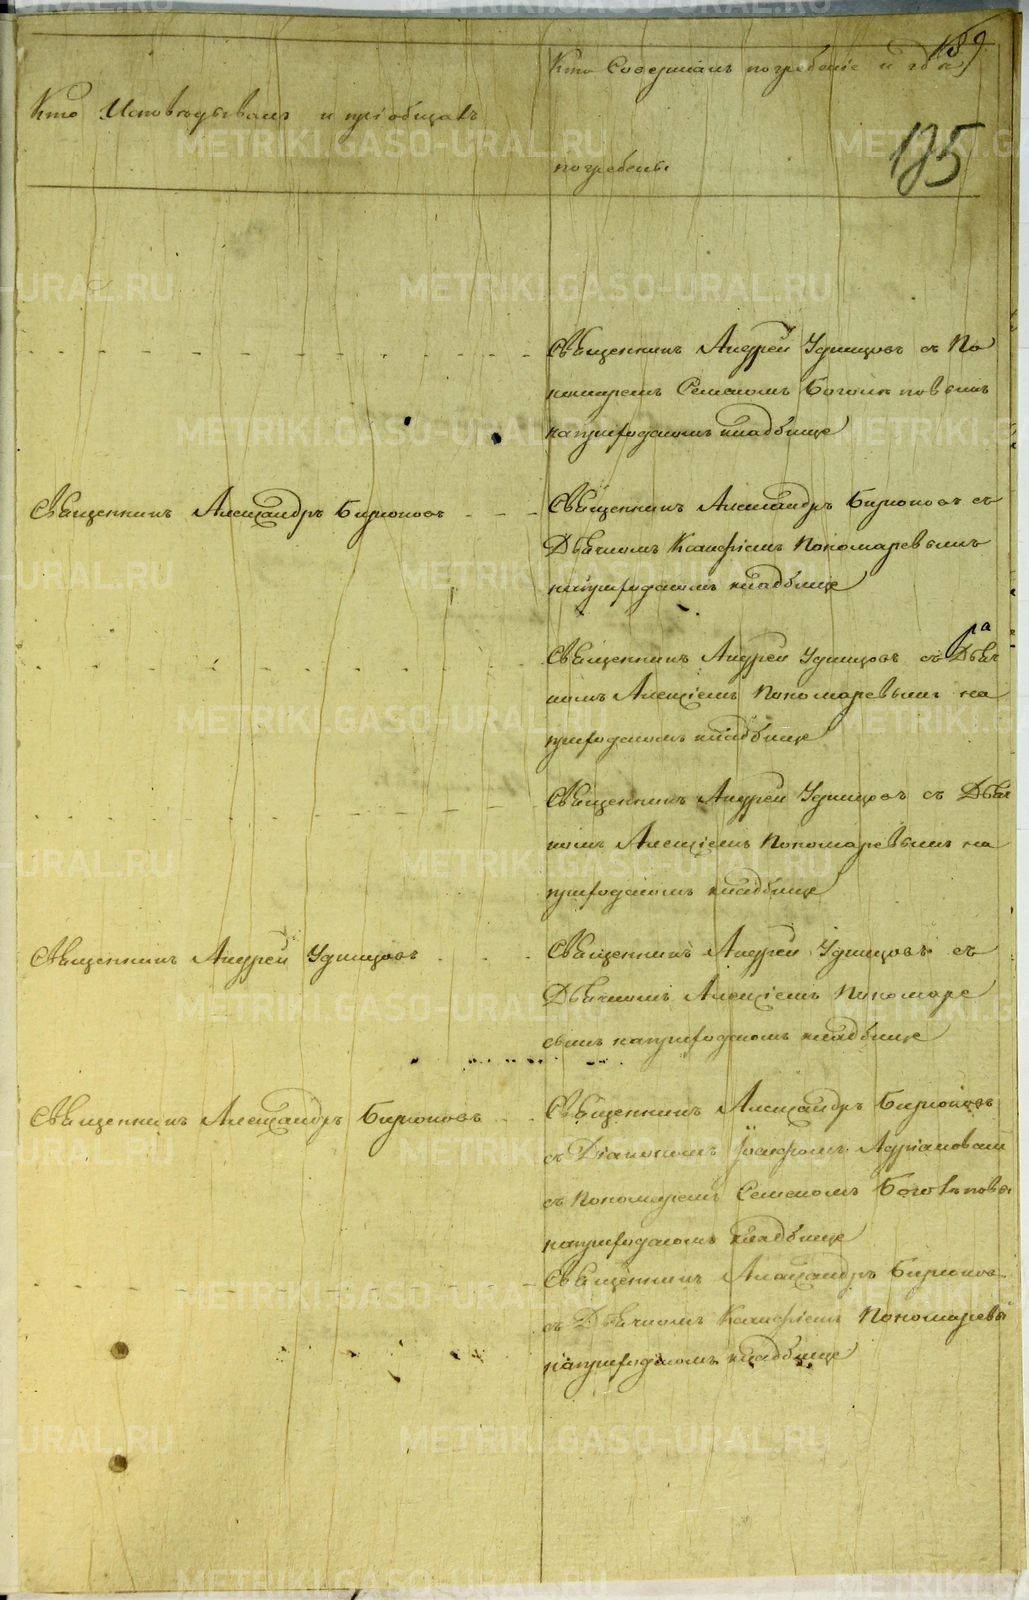 159
Кто Совершалъ погребенiе и гдѣ
Кто Исповѣдывалъ и прiобщалъ
195
погребены
Священникъ Андрей Удинцовъ съ По
номаремъ Семеномъ Боголѣповымъ
на приходскомъ кладбище
Священникъ Александръ Бирюковъ
Священникъ Александръ Бирюковъ съ
Дьячкомъ Пономаревымъ
на приходскомъ кладбище
Священникъ Андрей Удинцовъ съ Дьяч
комъ Алексiемъ Пономаревымъ на
приходскомъ кладбище
Священникъ Андрей Удинцовъ съ Дьяч
комъ Алексiемъ Пономаревымъ на
приходскомъ кладбище
Священникъ Андрей Удинцовъ
Священникъ Андрей Удинцовъ съ
Дьячкомъ Алексiемъ Пономаре
вымъ на приходскомъ кладбище
Священникъ Александръ Бирюковъ
Священникъ Александръ Бирюковъ
съ Дiакономъ Iосифомъ Адрiановым
съ Пономаремъ Семеномъ Боголѣповы
на приходскомъ кладбище
Священникъ Александръ Бирюков
съ Дьячкомъ Пономаревы
на приходскомъ кладбище
METRIKI.GASO-URAL.RU